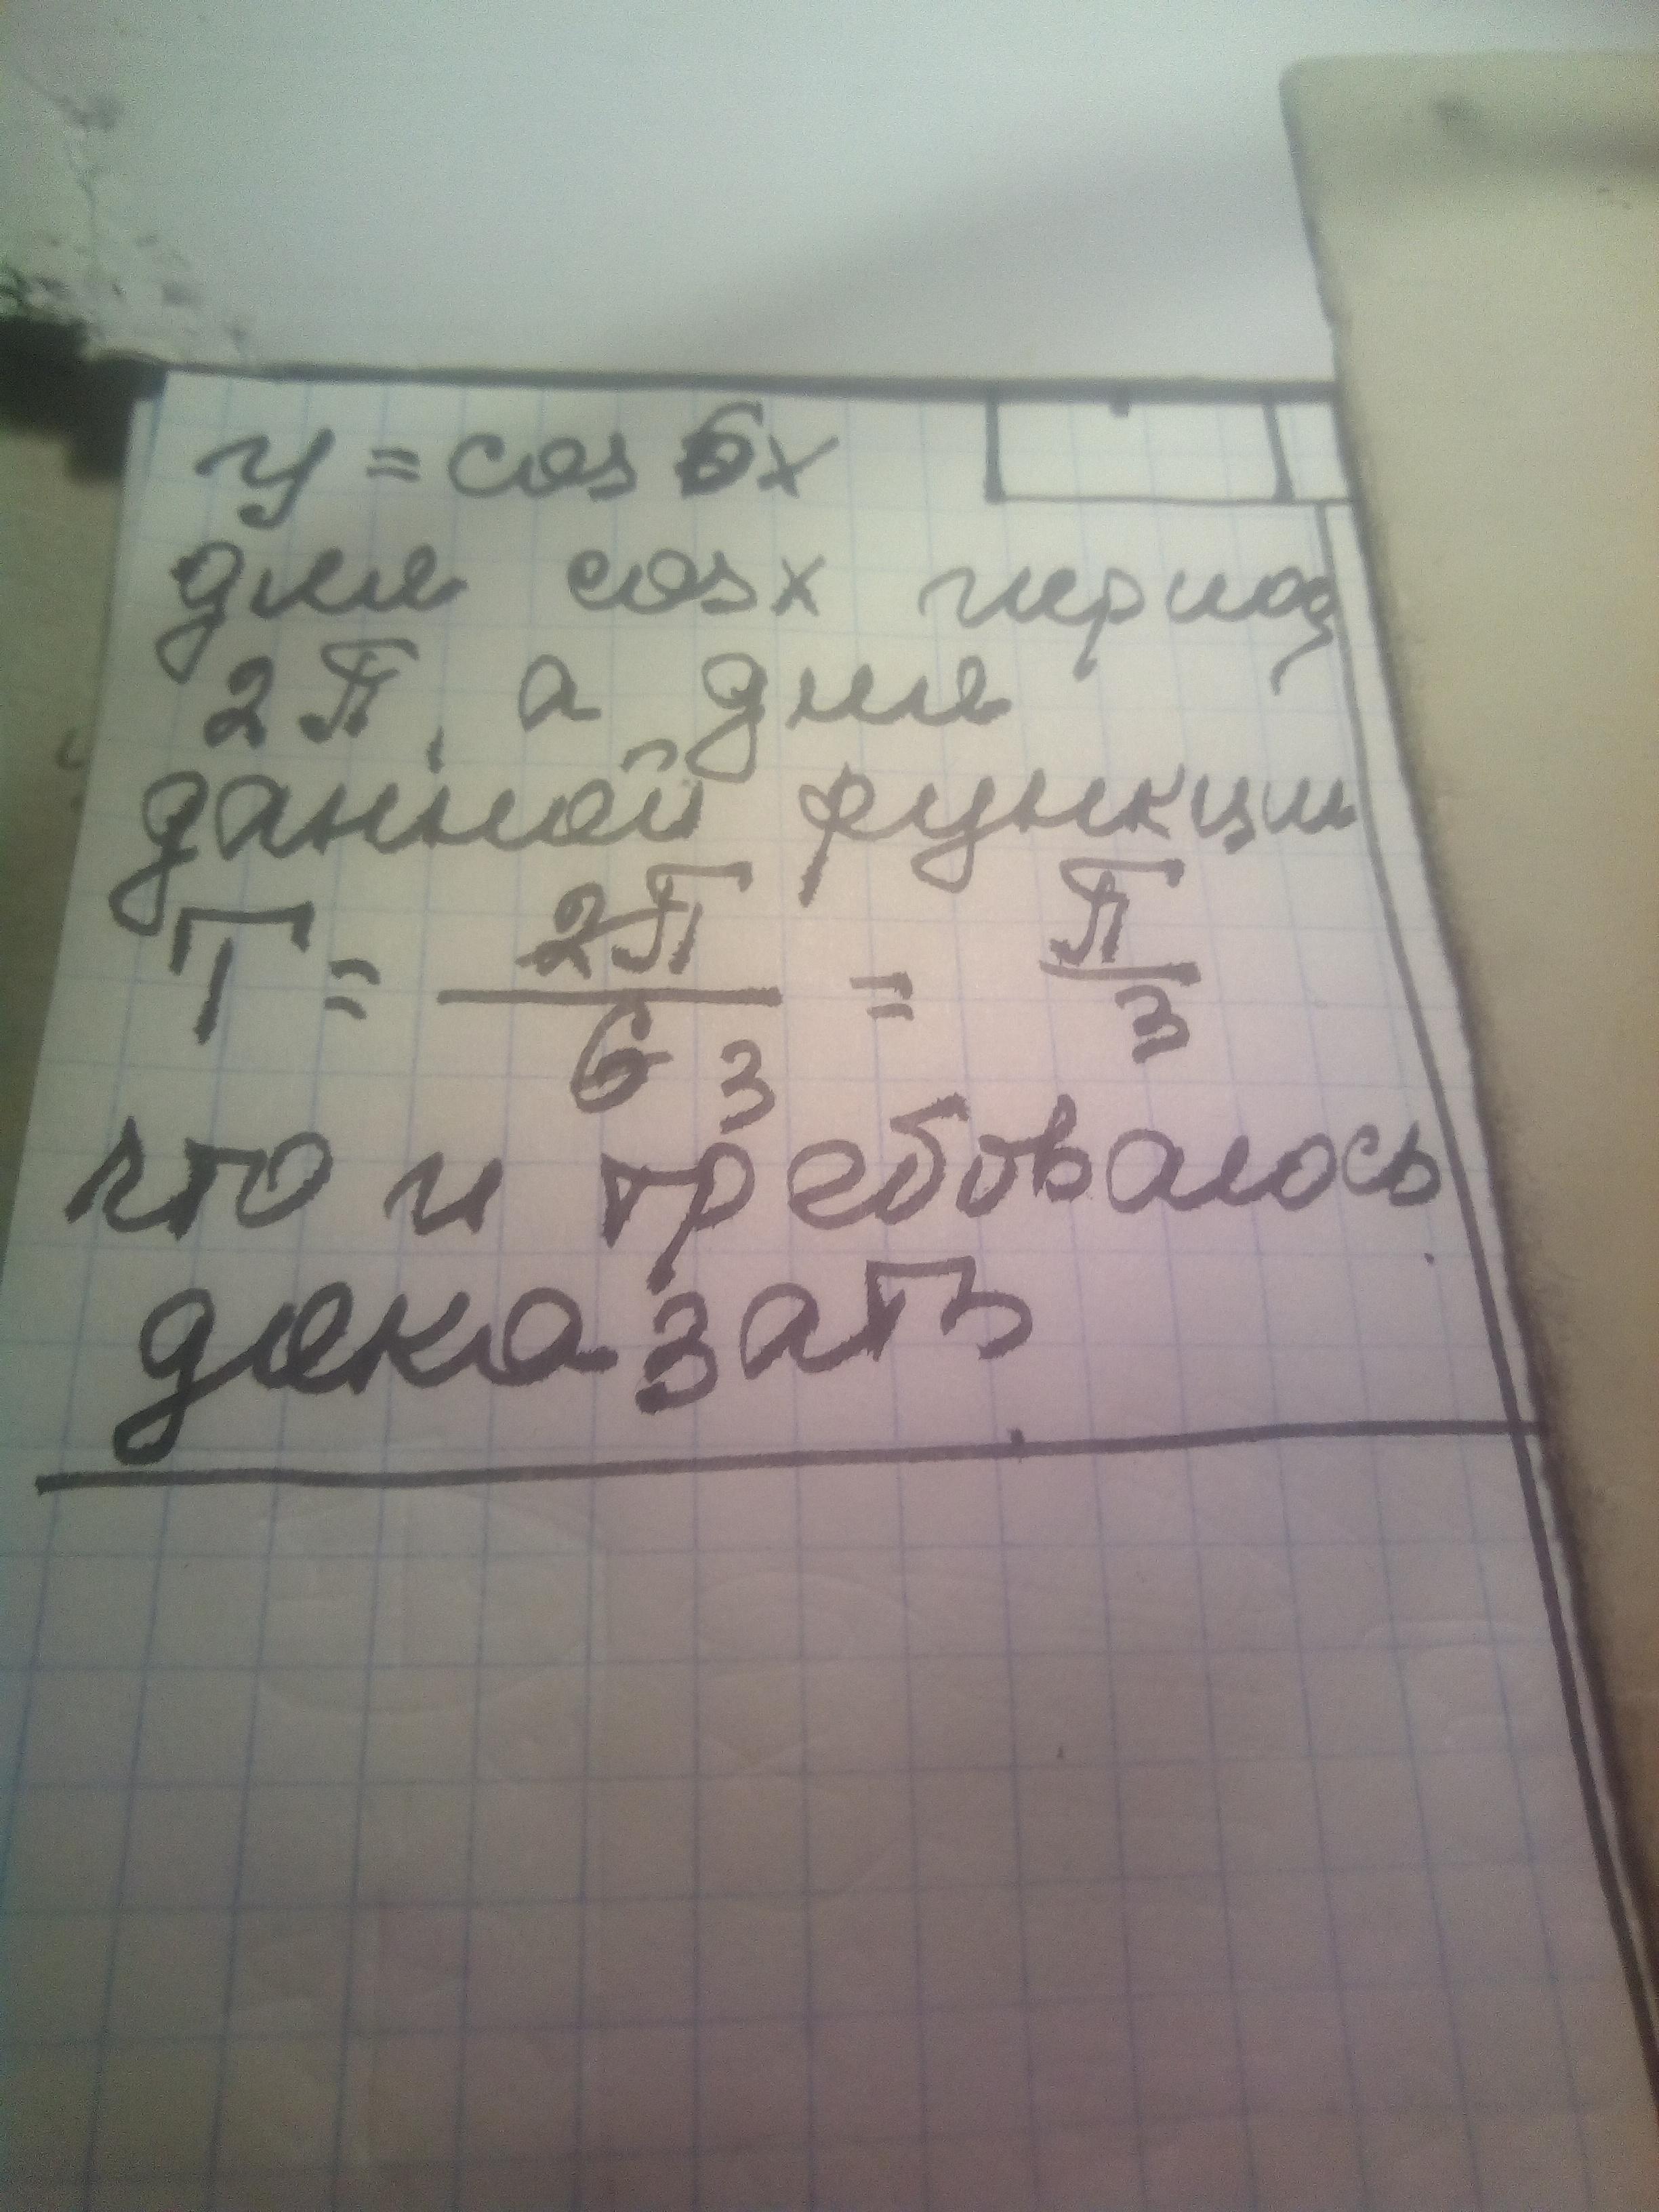 y = cos 6x
для cos x период
2π, а для
данной функции
T = 2π/6 3 = π/3
что и требовалось
доказать